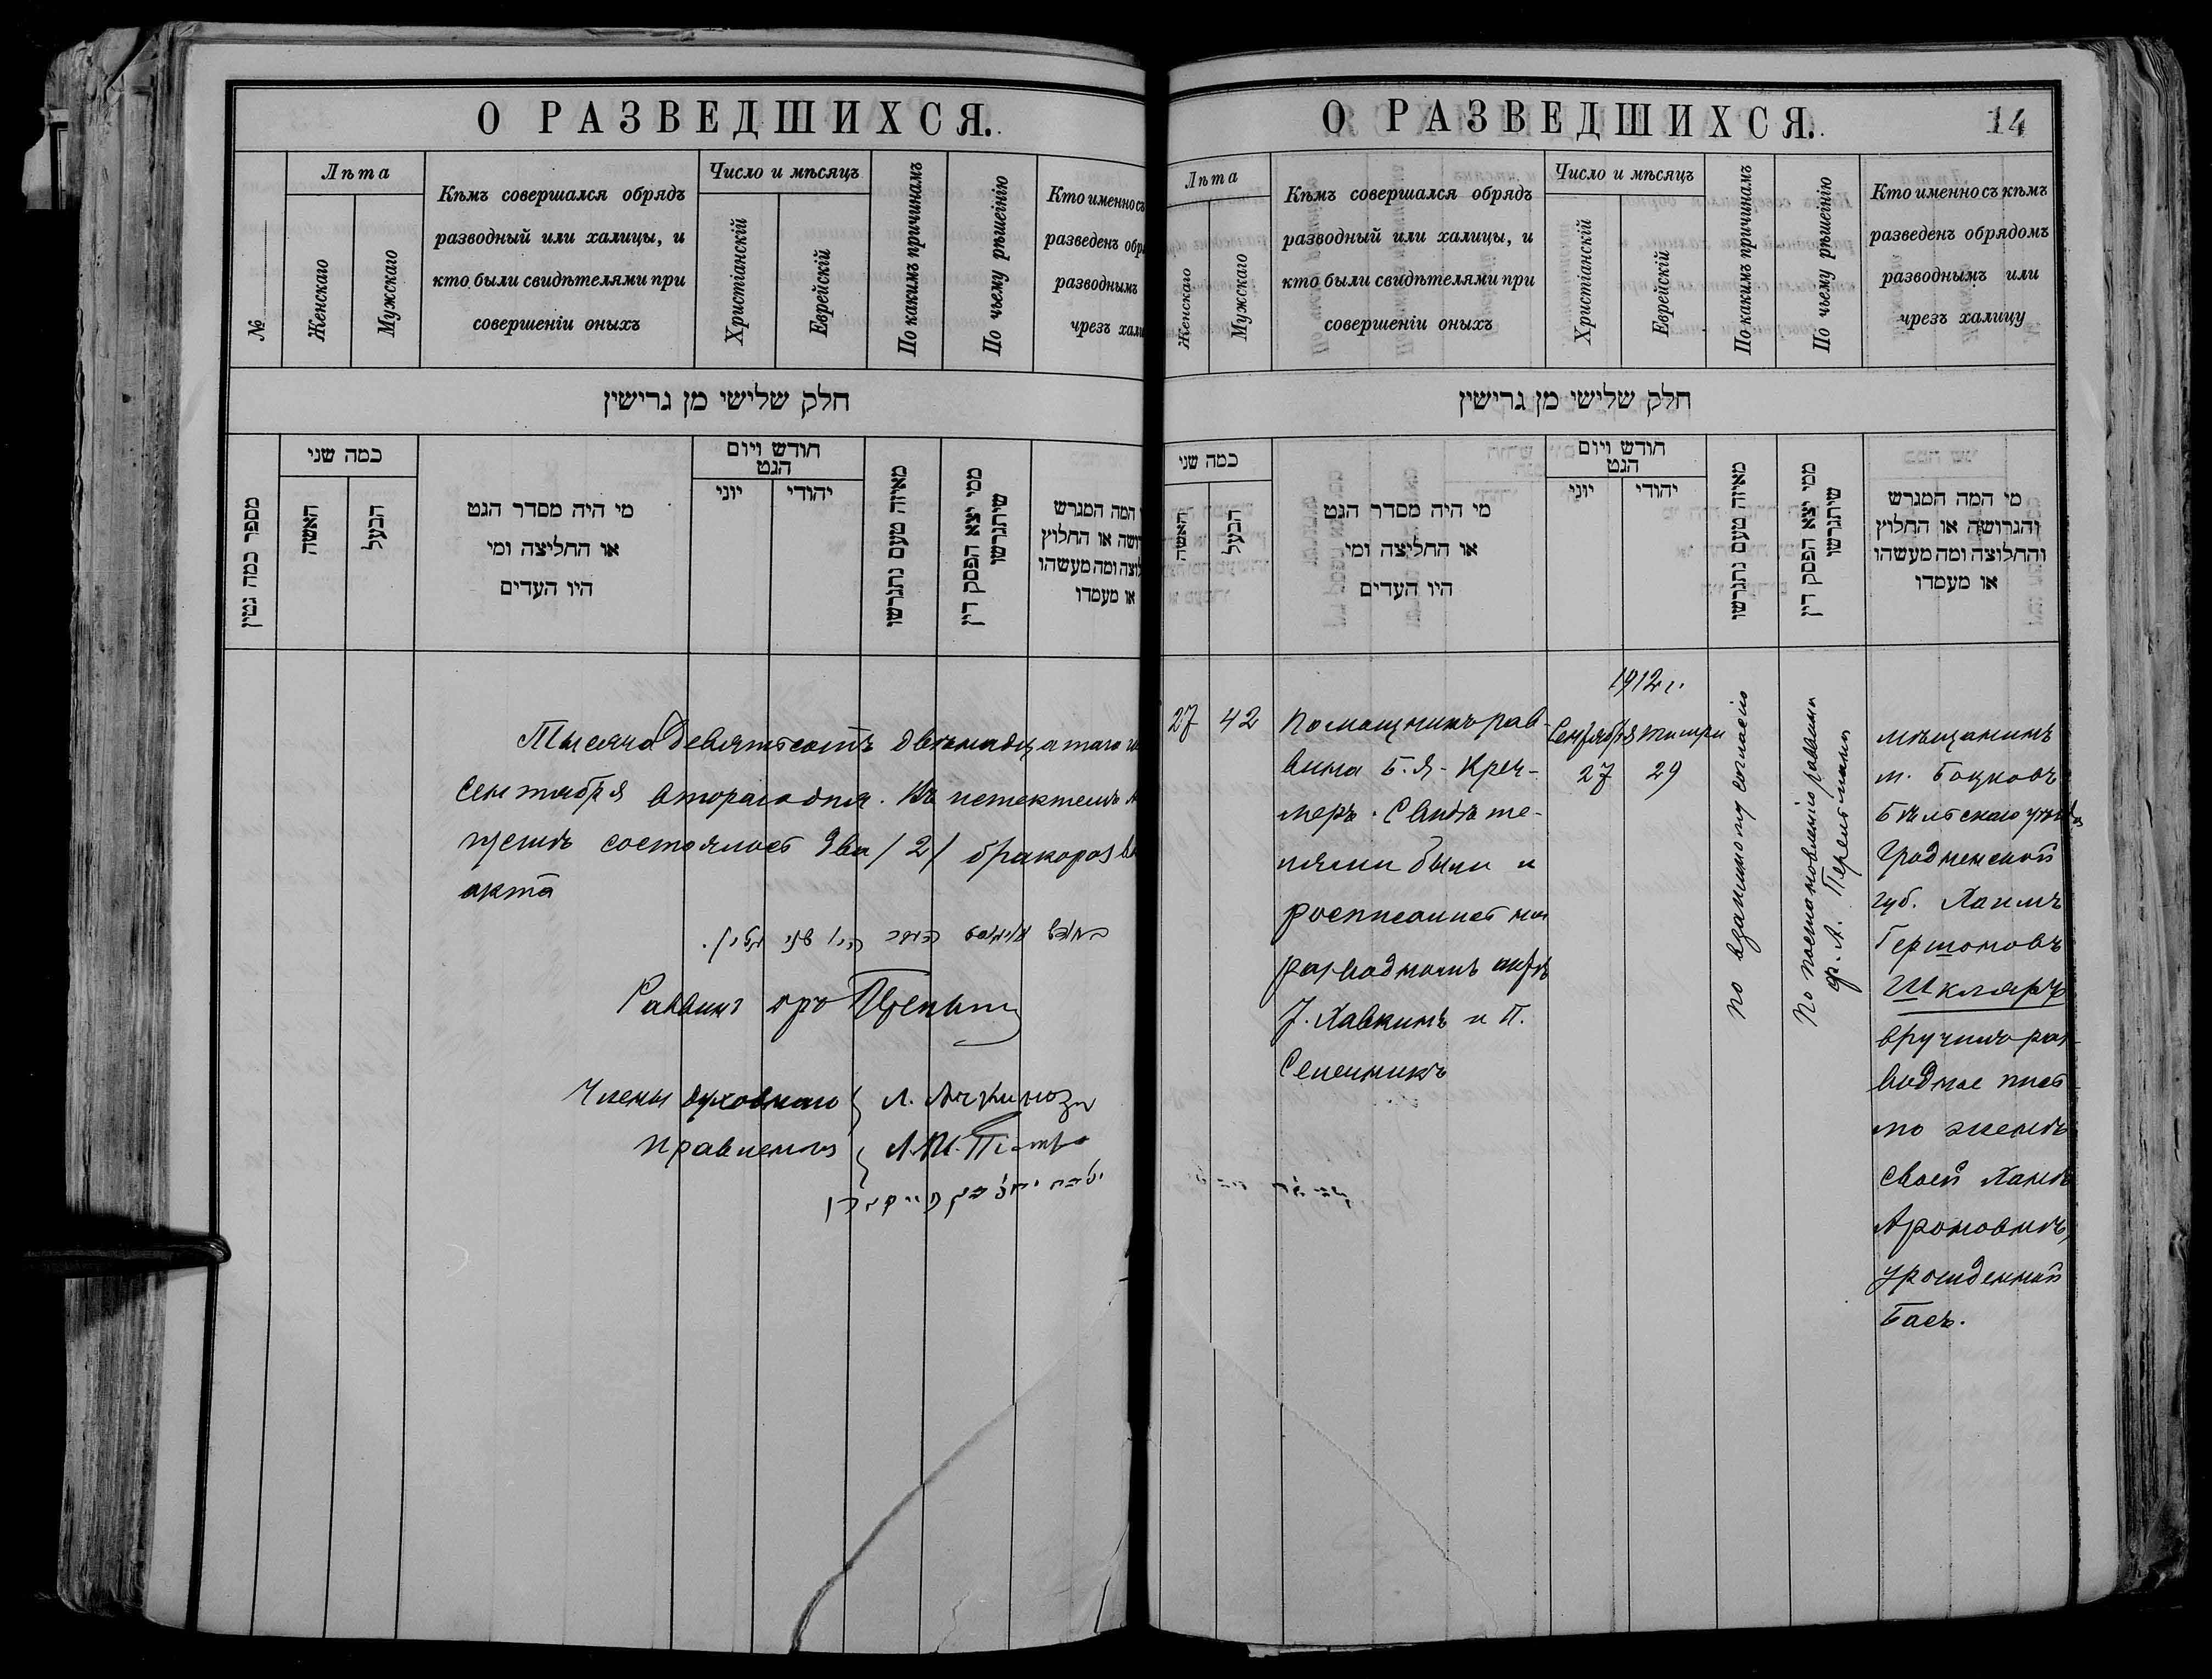 О РАЗВЕДШИХСЯ.
№
Лѣта
Женскаго
Мужскаго
Кѣмъ совершался обрядъ
разводный или халицы, и
кто были свидѣтелями при
совершеніи оныхъ
Число и мѣсяцъ
Христіанскій
Еврейскій
По какимъ причинамъ
По чьему рѣшенію
Кто именно съ
разведенъ обр
разводнымъ
чрезъ хали
חלק שלישי מן גרישין
מספר כמה גטין
כמה שני
האשה
הבעל
מי היה מסדר הגט
או החליצה ומי
היו העדים
חודש ויום
הגט
יוני
יהודי
מאיזה טעם נתגרשו
ממי יצא הפסק דין
שיתגרשו
המה המגרש
ושה או החלוץ
לוצה ומה מעשהו
או מעמדו
Тысяча девятьсотъ двѣнадцатаго
Сентября второго дня. Въ истекшемъ
состоялось два /2/ бракоразв
акта
היו שני גטין.
Раввинъ
Члены духовнаго
правленія
О РАЗВЕДШИХСЯ.
14
Лѣта
Женскаго
Мужскаго
Кѣмъ совершался обрядъ
разводный или халицы, и
кто были свидѣтелями при
совершеніи оныхъ
Число и мѣсяцъ
Христіанскій
Еврейскій
По какимъ причинамъ
По чьему рѣшенію
Кто именно съ кѣмъ
разведенъ обрядомъ
разводнымъ или
чрезъ халицу
חלק שלישי מן גרישין
כמה שני
האשה
הבעל
מי היה מסדר הגט
או החליצה ומי
היו העדים
חודש ויום
הגט
יוני
יהודי
מאיזה טעם נתגרשו
ממי יצא הפסק דין
שיתגרשו
מי המה המגרש
והגרושה או החלוץ
והחלוצה ומה מעשהו
או מעמדו
27
42
Помощникъ рав-
вина Б. Я. Креч-
меръ. Свидѣте-
лями были и
росписались на
разводномъ актѣ
І. Хавкинъ и П.
1912 г.
Сентября Тишри
27 29
по взаимному согласію
по постановленію раввина
др. А. Перельмана
мѣщанинъ
м. Боцковъ
Бѣльскаго уѣзда
Гродненской
губ. Хаимъ
Гершоновъ
Шкляръ
вручилъ раз-
водное пись-
мо женѣ
своей Ханѣ
Ароновнѣ,
урожденной
Басъ.